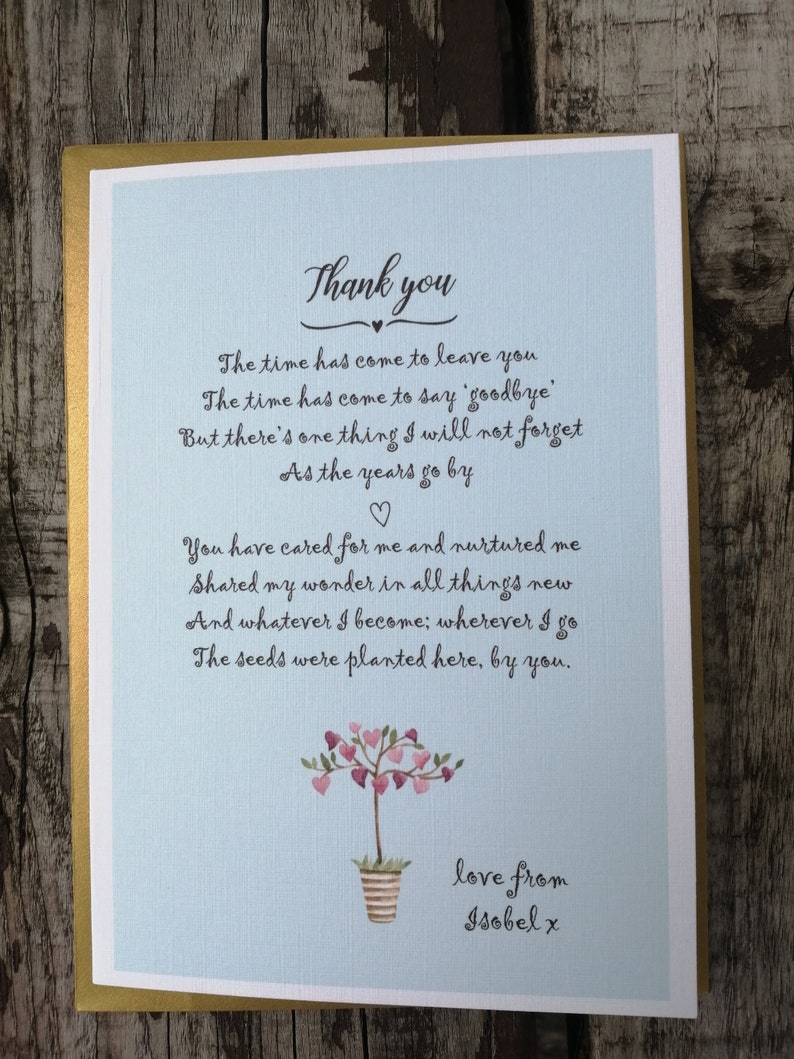 Thank you
The time has come to leave you
The time has come to say 'goodbye'
But there's one thing I will not forget
As the years go by
You have cared for me and nurtured me
Shared my wonder in all things new
And whatever I become; wherever I go
The seeds were planted here, by you.
love from
Isobel x